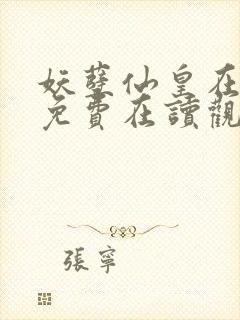 妖孽仙皇在
免費在讀觀
張寧